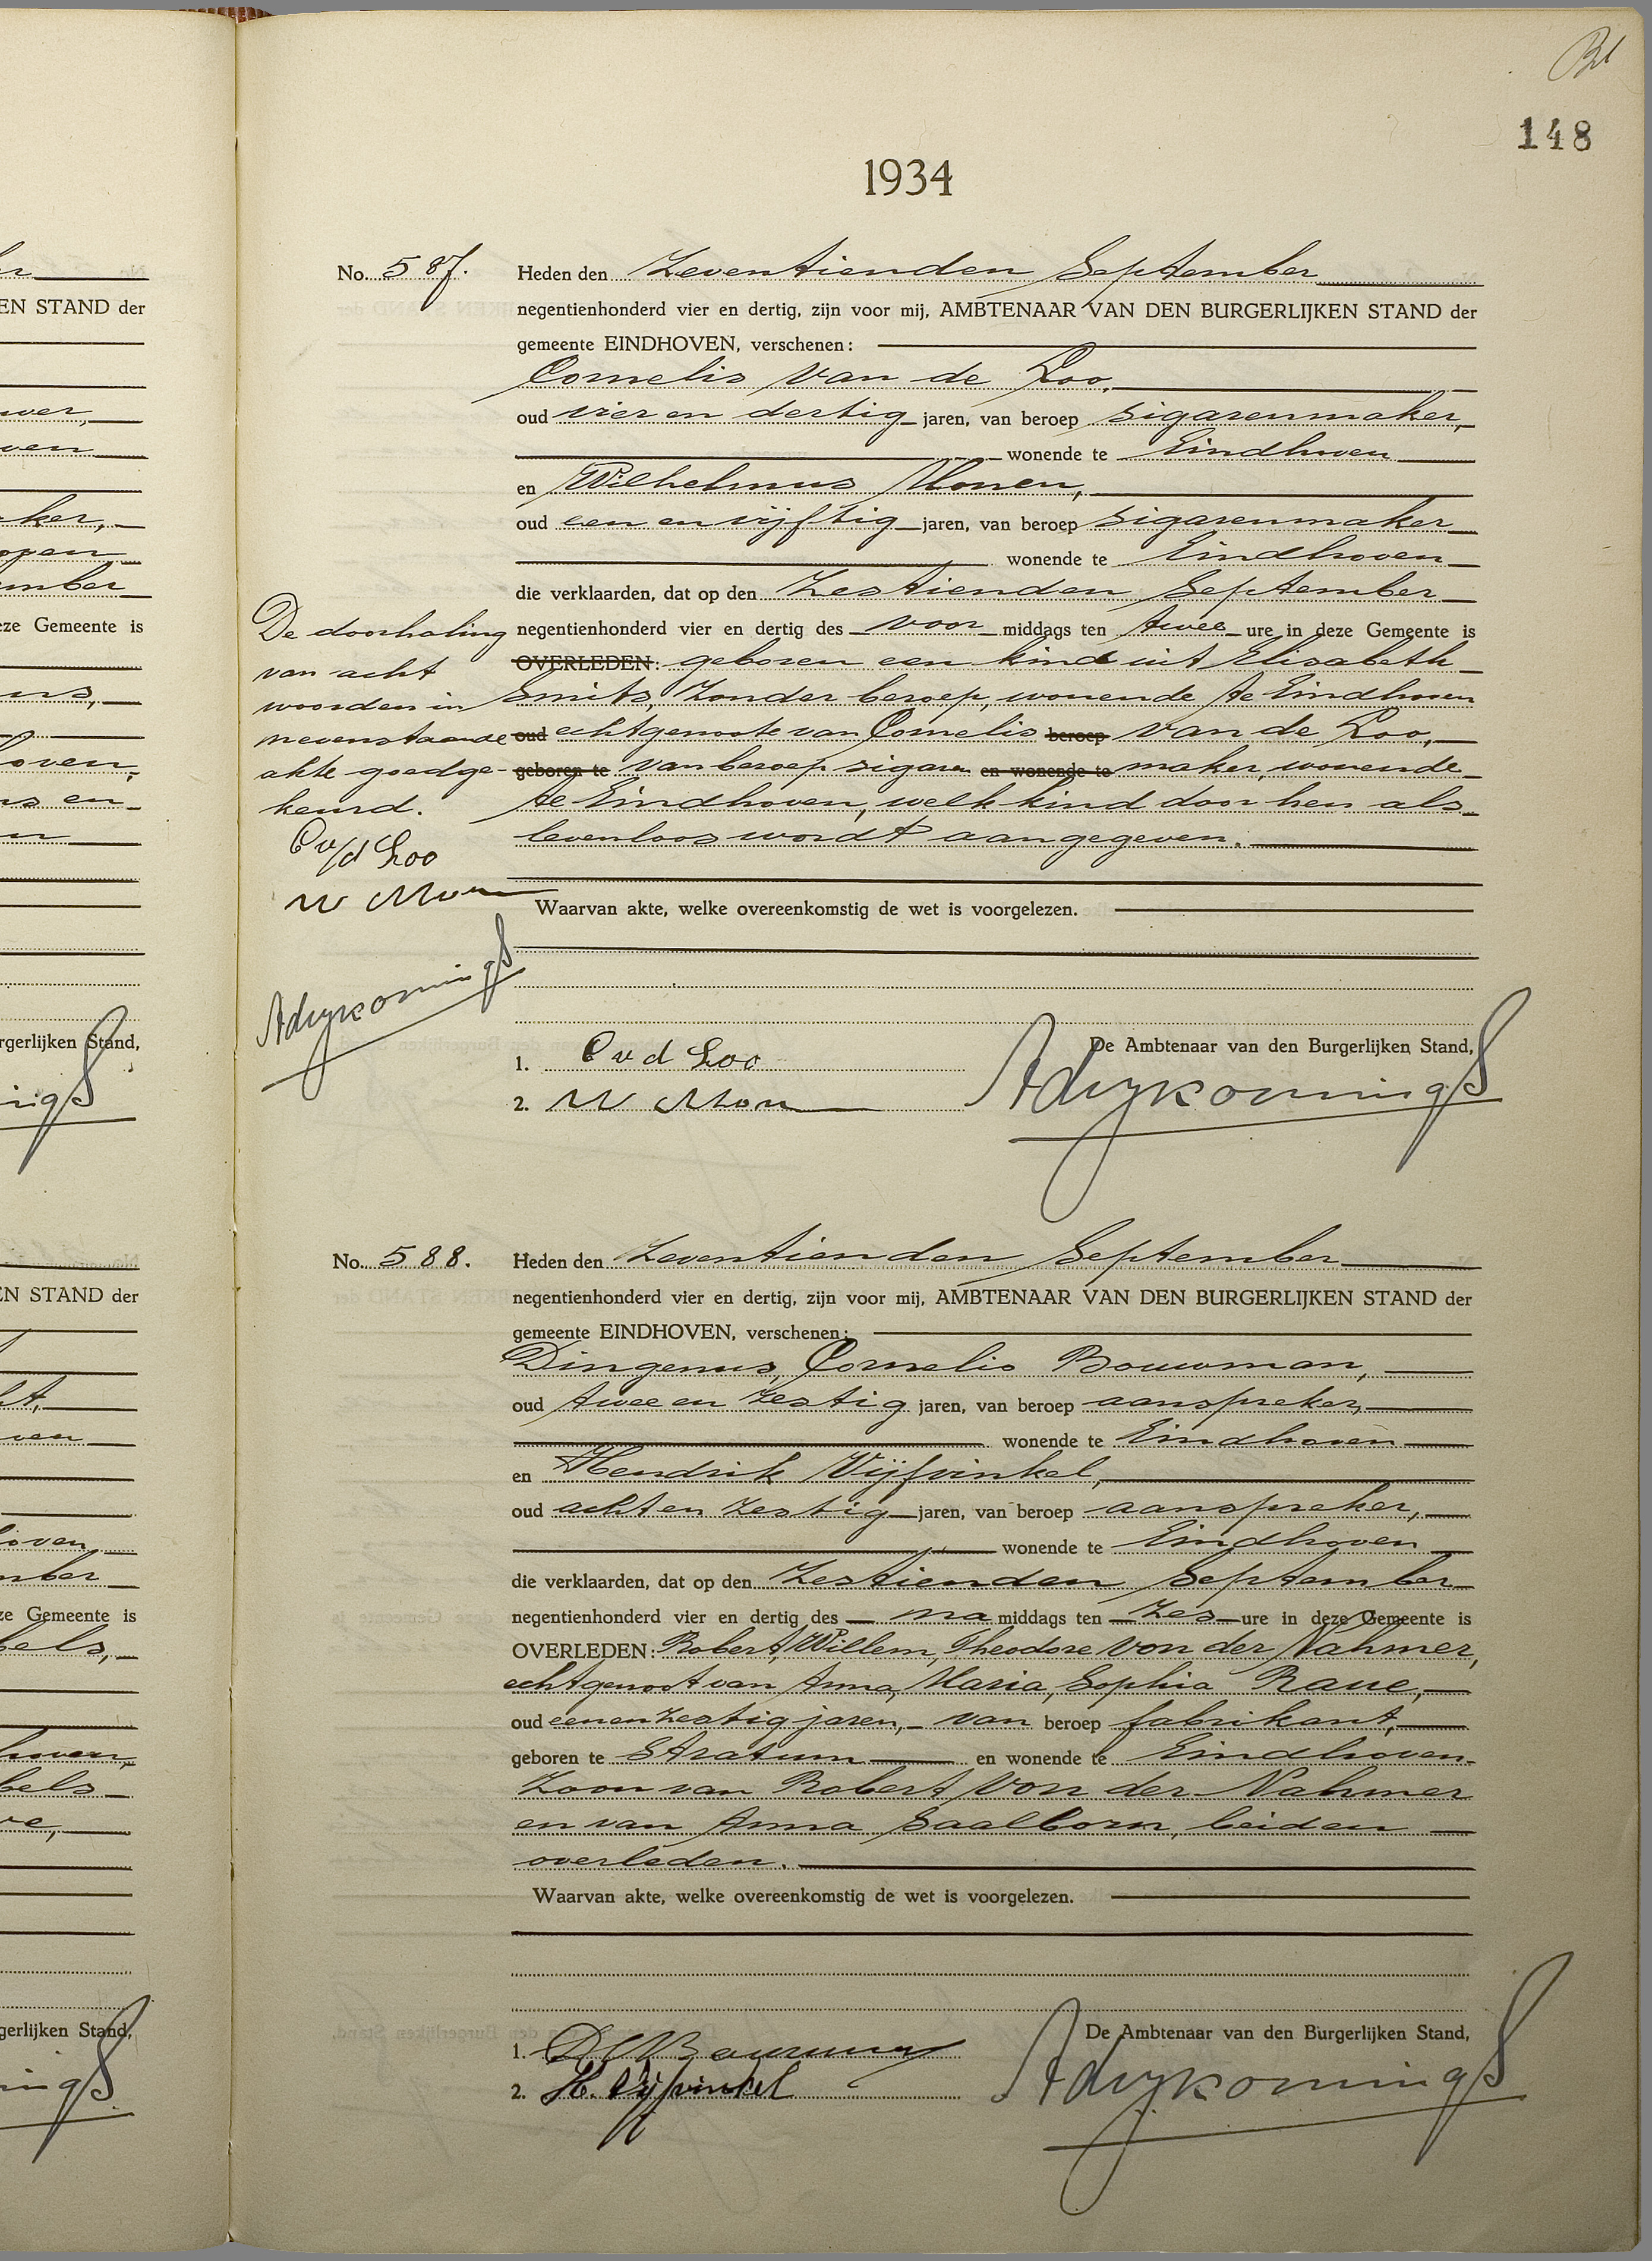 148
1934
No. 587. Heden den Zeventienden September
negentienhonderd vier en dertig, zijn voor mij, AMBTENAAR VAN DEN BURGERLIJKEN STAND der
gemeente EINDHOVEN, verschenen:
Cornelis van de Loo,
oud vier en dertig jaren, van beroep sigarenmaker,
wonende te Eindhoven
en Wilhelmus Monen,
oud een en vijftig jaren, van beroep sigarenmaker
wonende te Eindhoven
die verklaarden, dat op den Zestienden September
negentienhonderd vier en dertig des voor middags ten twee ure in deze Gemeente is
OVERLEDEN: geboren een kind uit Elisabeth
Smits, zonder beroep, wonende te Eindhoven
oud echtgenoote van Cornelis beroep van de Loo,
geboren te van beroep sigaren en wonende te maker, wonende
te Eindhoven, welk kind door hen als
levenloos wordt aangegeven.
De doorhaling
van acht
woorden in
nevenstaande
akte goedge-
keurd.
C v/d Loo
W Monen
Waarvan akte, welke overeenkomstig de wet is voorgelezen.
De Ambtenaar van den Burgerlijken Stand,
1. C v d Loo
2. W Monen
No. 588. Heden den Zeventienden September
negentienhonderd vier en dertig, zijn voor mij, AMBTENAAR VAN DEN BURGERLIJKEN STAND der
gemeente EINDHOVEN, verschenen:
Dingenus, Cornelis Bouwman,
oud twee en zestig jaren, van beroep aanspreker,
wonende te Eindhoven
en Hendrik Vijfvinkel,
oud acht en zestig jaren, van beroep aanspreker,
wonende te Eindhoven
die verklaarden, dat op den Zestienden September
negentienhonderd vier en dertig des na middags ten zes ure in deze Gemeente is
OVERLEDEN: Robert, Willem, Theodore von der Nahmer,
echtgenoot van Anna, Maria, Sophia Raue,
oud een en zestig jaren, van beroep fabrikant,
geboren te Stratum en wonende te Eindhoven
zoon van Robert von der Nahmer
en van Anna Saalborn, beiden
overleden.
Waarvan akte, welke overeenkomstig de wet is voorgelezen.
De Ambtenaar van den Burgerlijken Stand,
1. D C Bouwman
2. H. Vijfvinkel